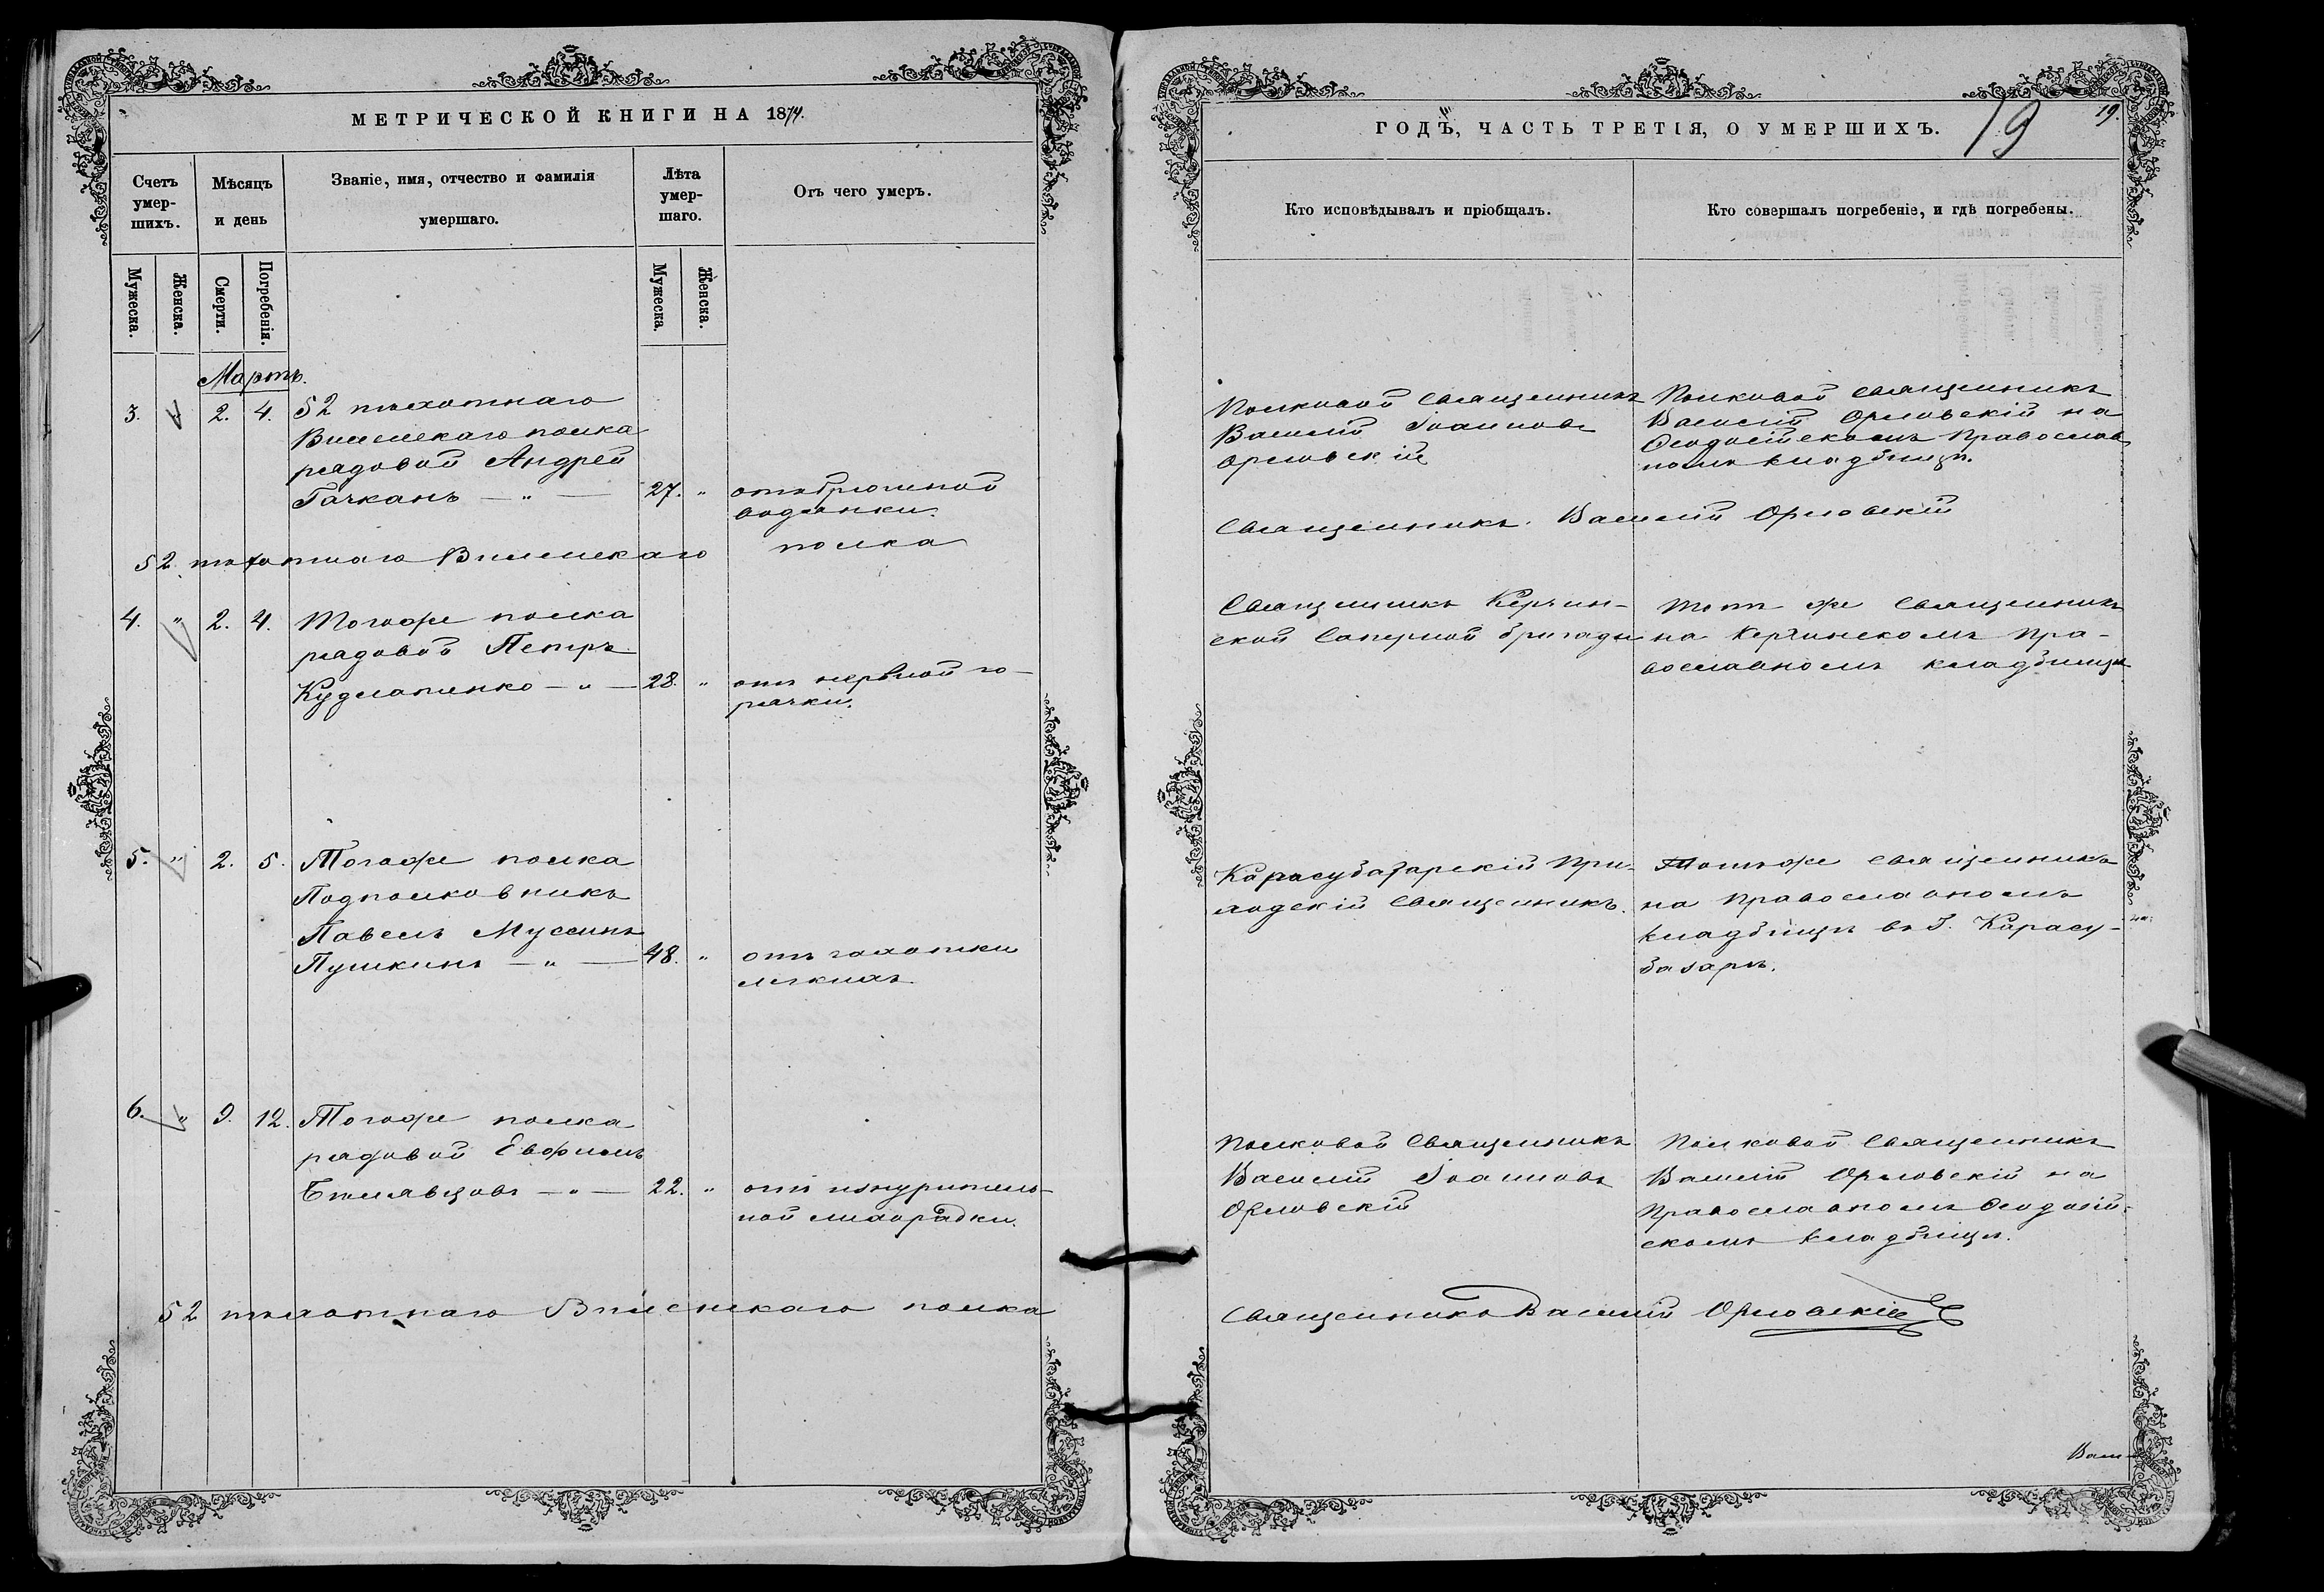 МЕТРИЧЕСКОЙ КНИГИ НА 1874.
Счетъ умер-шихъ.
Мѣсяцъ и день
Званіе, имя, отчество и фамилія умершаго.
Лѣта умер-шаго.
Отъ чего умеръ.
Мужеска.
Женска.
Смерти.
Погребенія.
Мужеска.
Женска.
Мартъ.
3. " 2. 4. 52 пѣхотнаго
Виленскаго полка
рядовой Андрей
Гачканъ — " — 27. " отъ брюшной
водянки.
52 пѣхотнаго Виленскаго полка
4. " 2. 4. Тогоже полка
рядовой Петръ
Кудлапенко — " — 28. " отъ нервной го-
рячки.
5. " 2. 5. Тогоже полка
Подполковникъ
Павелъ Мусинъ
Пушкинъ — " — 48. " отъ чахотки
легкихъ
6. " 9. 12. Тогоже полка
рядовой Евфимъ
Бѣлявцовъ — " — 22. " отъ изнуритель-
ной лихорадки.
52 пѣхотнаго Виленскаго полка
ГОДЪ, ЧАСТЬ ТРЕТІЯ, О УМЕРШИХЪ.
19
19.
Кто исповѣдывалъ и пріобщалъ.
Кто совершалъ погребеніе, и гдѣ погребены.
Полковой Священникъ
Василій Іоанновъ
Орловскій
Полковой Священникъ
Василій Орловскій на
Ѳеодосійскомъ Православ
номъ кладбищѣ.
Священникъ Василій Орловскій
Священникъ Керчин-
ской Саперной бригады
Тотъ же Священникъ
на Керчинскомъ Пра-
вославномъ кладбищѣ
Карасубазарскій При-
ходскій Священникъ.
Тотъ же Священникъ
на Православномъ
кладбищѣ въ Г. Карасу-
базарѣ.
Полковой Священникъ
Василій Іоанновъ
Орловскій
Полковой Священникъ
Василій Орловскій на
Православномъ Ѳеодосій-
скомъ кладбищѣ.
Священникъ Василій Орловскій